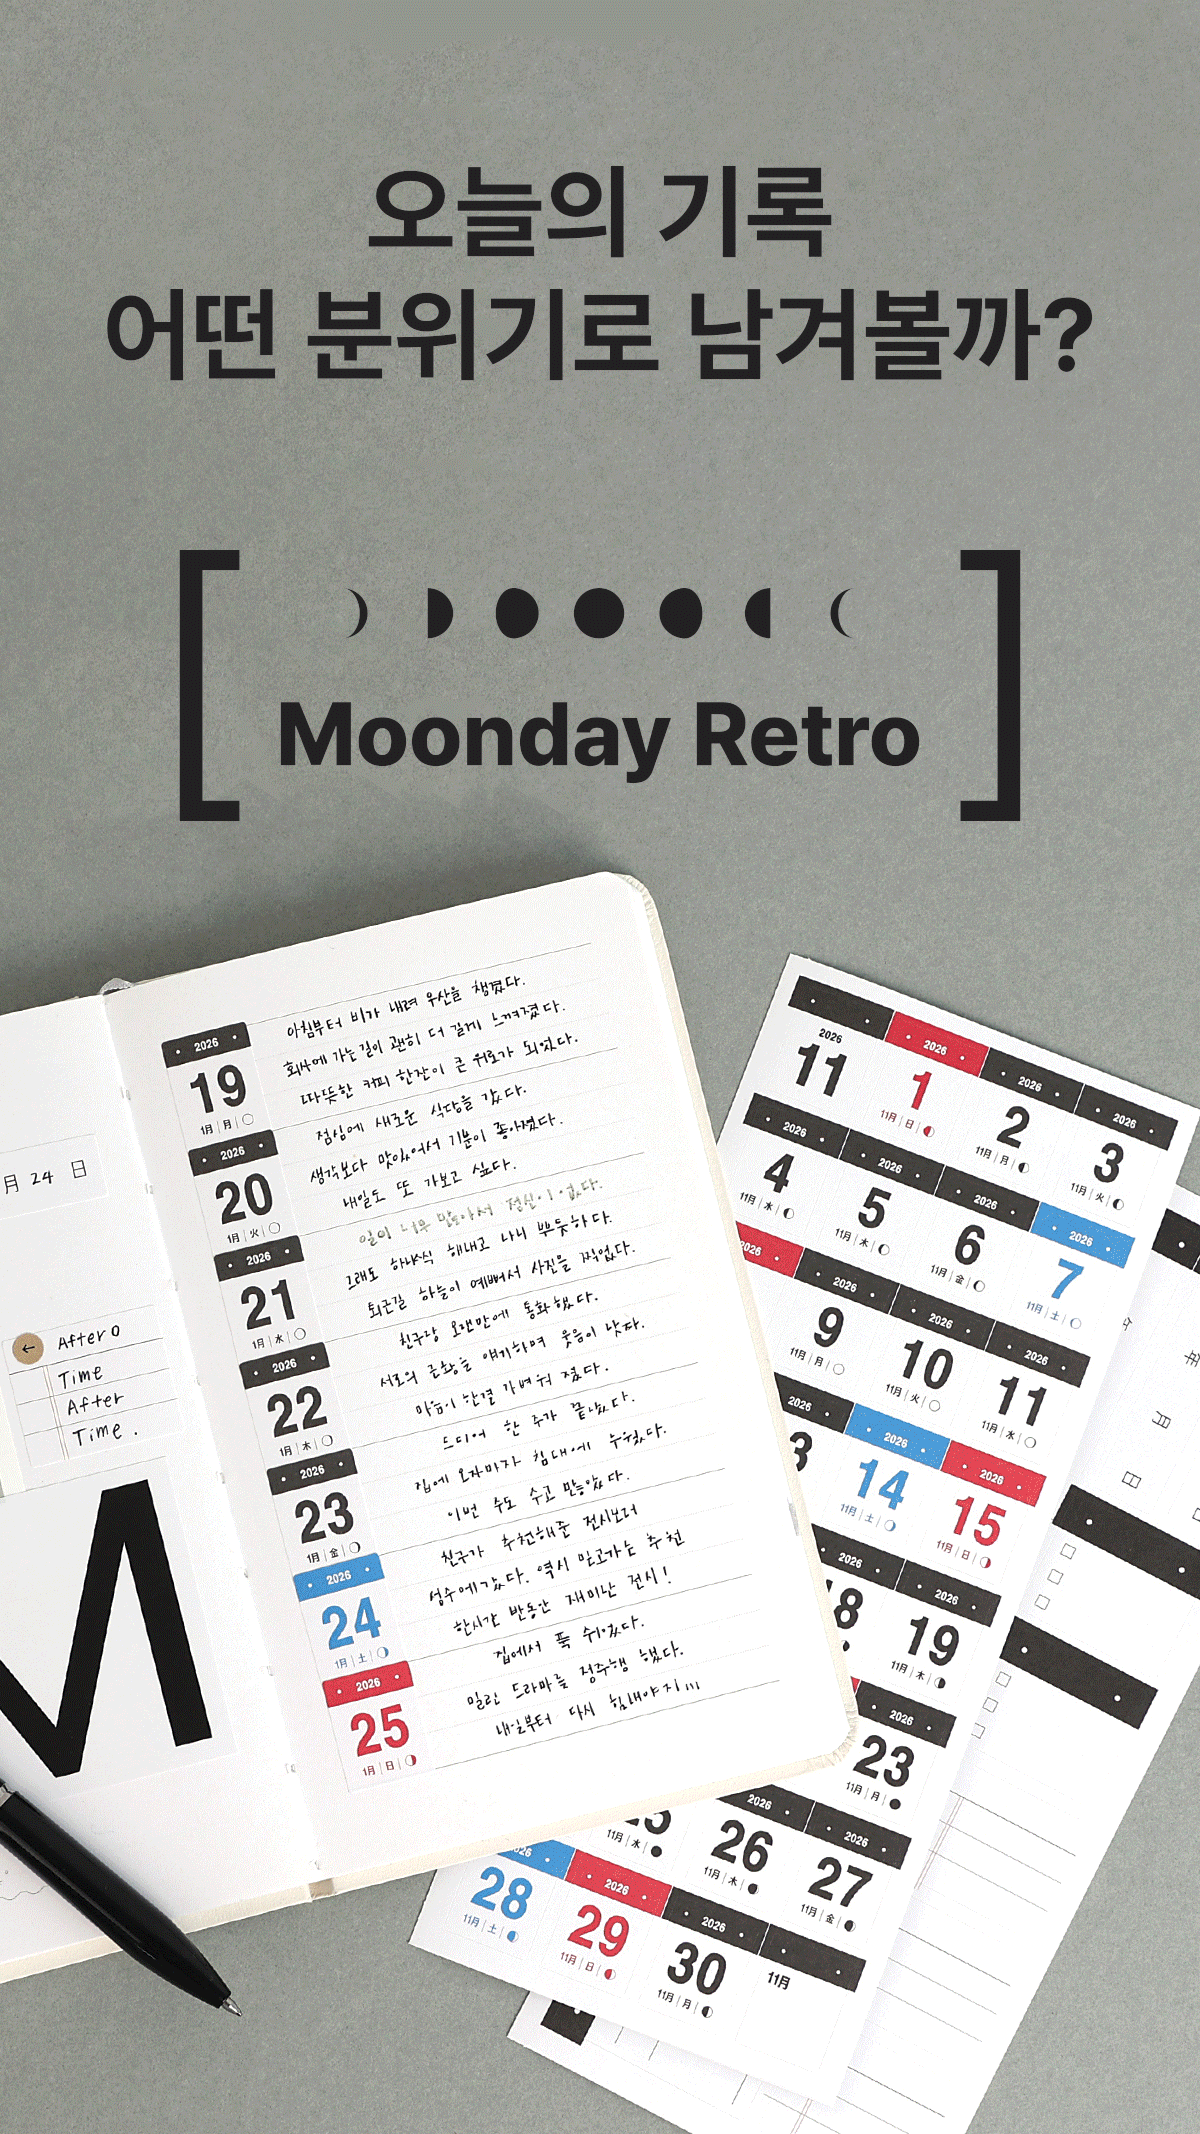 오늘의 기록
어떤 분위기로 남겨볼까?
Moonday Retro
月 24 日
After
Time
After
Time.
2026
19
1月|月
아침부터 비가 내려 우산을 챙겼다.
회사에 가는 길이 괜히 더 길게 느껴졌다.
따뜻한 커피 한잔이 큰 위로가 되었다.
2026
20
1月|火
점심에 새로운 식당을 갔다.
생각보다 맛있어서 기분이 좋아졌다.
내일도 또 가보고 싶다.
2026
21
1月|水
일이 너무 많아서 정신이 없다.
그래도 하나씩 해내고 나니 뿌듯하다.
퇴근길 하늘이 예뻐서 사진을 찍었다.
2026
22
1月|木
친구랑 오랜만에 통화했다.
서로의 근황을 얘기하며 웃음이 났다.
마음이 한결 가벼워 졌다.
2026
23
1月|金
드디어 한 주가 끝났다.
집에 오자마자 침대에 누웠다.
이번 주도 수고 많았다.
2026
24
1月|土
친구가 추천해준 전시보러
성수에 갔다. 역시 믿고가는 추천
한시간 반동안 재미난 전시!
2026
25
1月|日
집에서 푹 쉬었다.
밀린 드라마를 정주행 했다.
내일부터 다시 힘내야지...
M
2026
11
2026
1
11月|日
2026
2
11月|月
2026
3
11月|火
2026
4
11月|水
2026
5
11月|木
2026
6
11月|金
2026
7
11月|土
2026
9
11月|月
2026
10
11月|火
2026
11
11月|水
2026
2026
14
11月|土
2026
15
11月|日
2026
18
2026
19
11月|木
2026
23
11月|月
25
11月|水
2026
26
11月|木
2026
27
11月|金
28
11月|土
2026
29
11月|日
2026
30
11月|月
11月